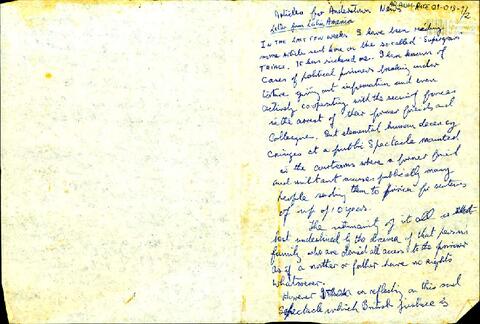 Articles for Andersonstown News
Letter from Latin America
In the last few weeks I have been reading
some articles sent here on the so called Supergrass
Trials. It has sickened me. I have known of
Cases of political prisoners breaking under
torture giving out information and even
actively co-operating with the security forces
in the arrest of their former friends and
Colleagues. But elemental human decency
cringes at a public Spectacle mounted
in the courtrooms where a former friend
and militant accuses publically many
people sending them to prison for sentences
of up to 10 years.
The inhumanity of it all is
best understood by the drama of that persons
family who are denied all access to the prisoner
as if a mother or father have no rights
whatsoever.
However on reflection on this sad
Spectacle which British justice is